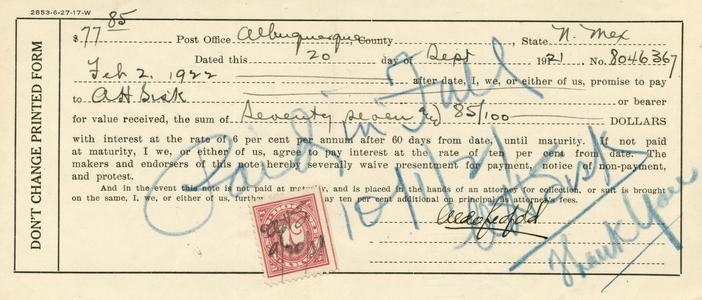 2853-6-27-17-W
DON'T CHANGE PRINTED FORM
$77 85 Post Office Albuquerque County, State N. Mex
Dated this 20 day of Sept 1921 No. 8046367
Feb 2. 1922 after date, I, we, or either of us, promise to pay
to A H Sisk or bearer
for value received, the sum of Seventy seven and 85/100 DOLLARS
with interest at the rate of 6 per cent per annum after 60 days from date, until maturity. If not paid
at maturity, I we, or either of us, agree to pay interest at the rate of ten per cent from date. The
makers and endorsers of this note hereby severally waive presentment for payment, notice of non-payment,
and protest.
And in the event this note is not paid at maturity, and is placed in the hands of an attorney for collection, or suit is brought
on the same, I, we, or either of us, further may ten per cent additional on principal as attorney's fees.
Paid in Full
10/1/21
A H Sisk
Thank You